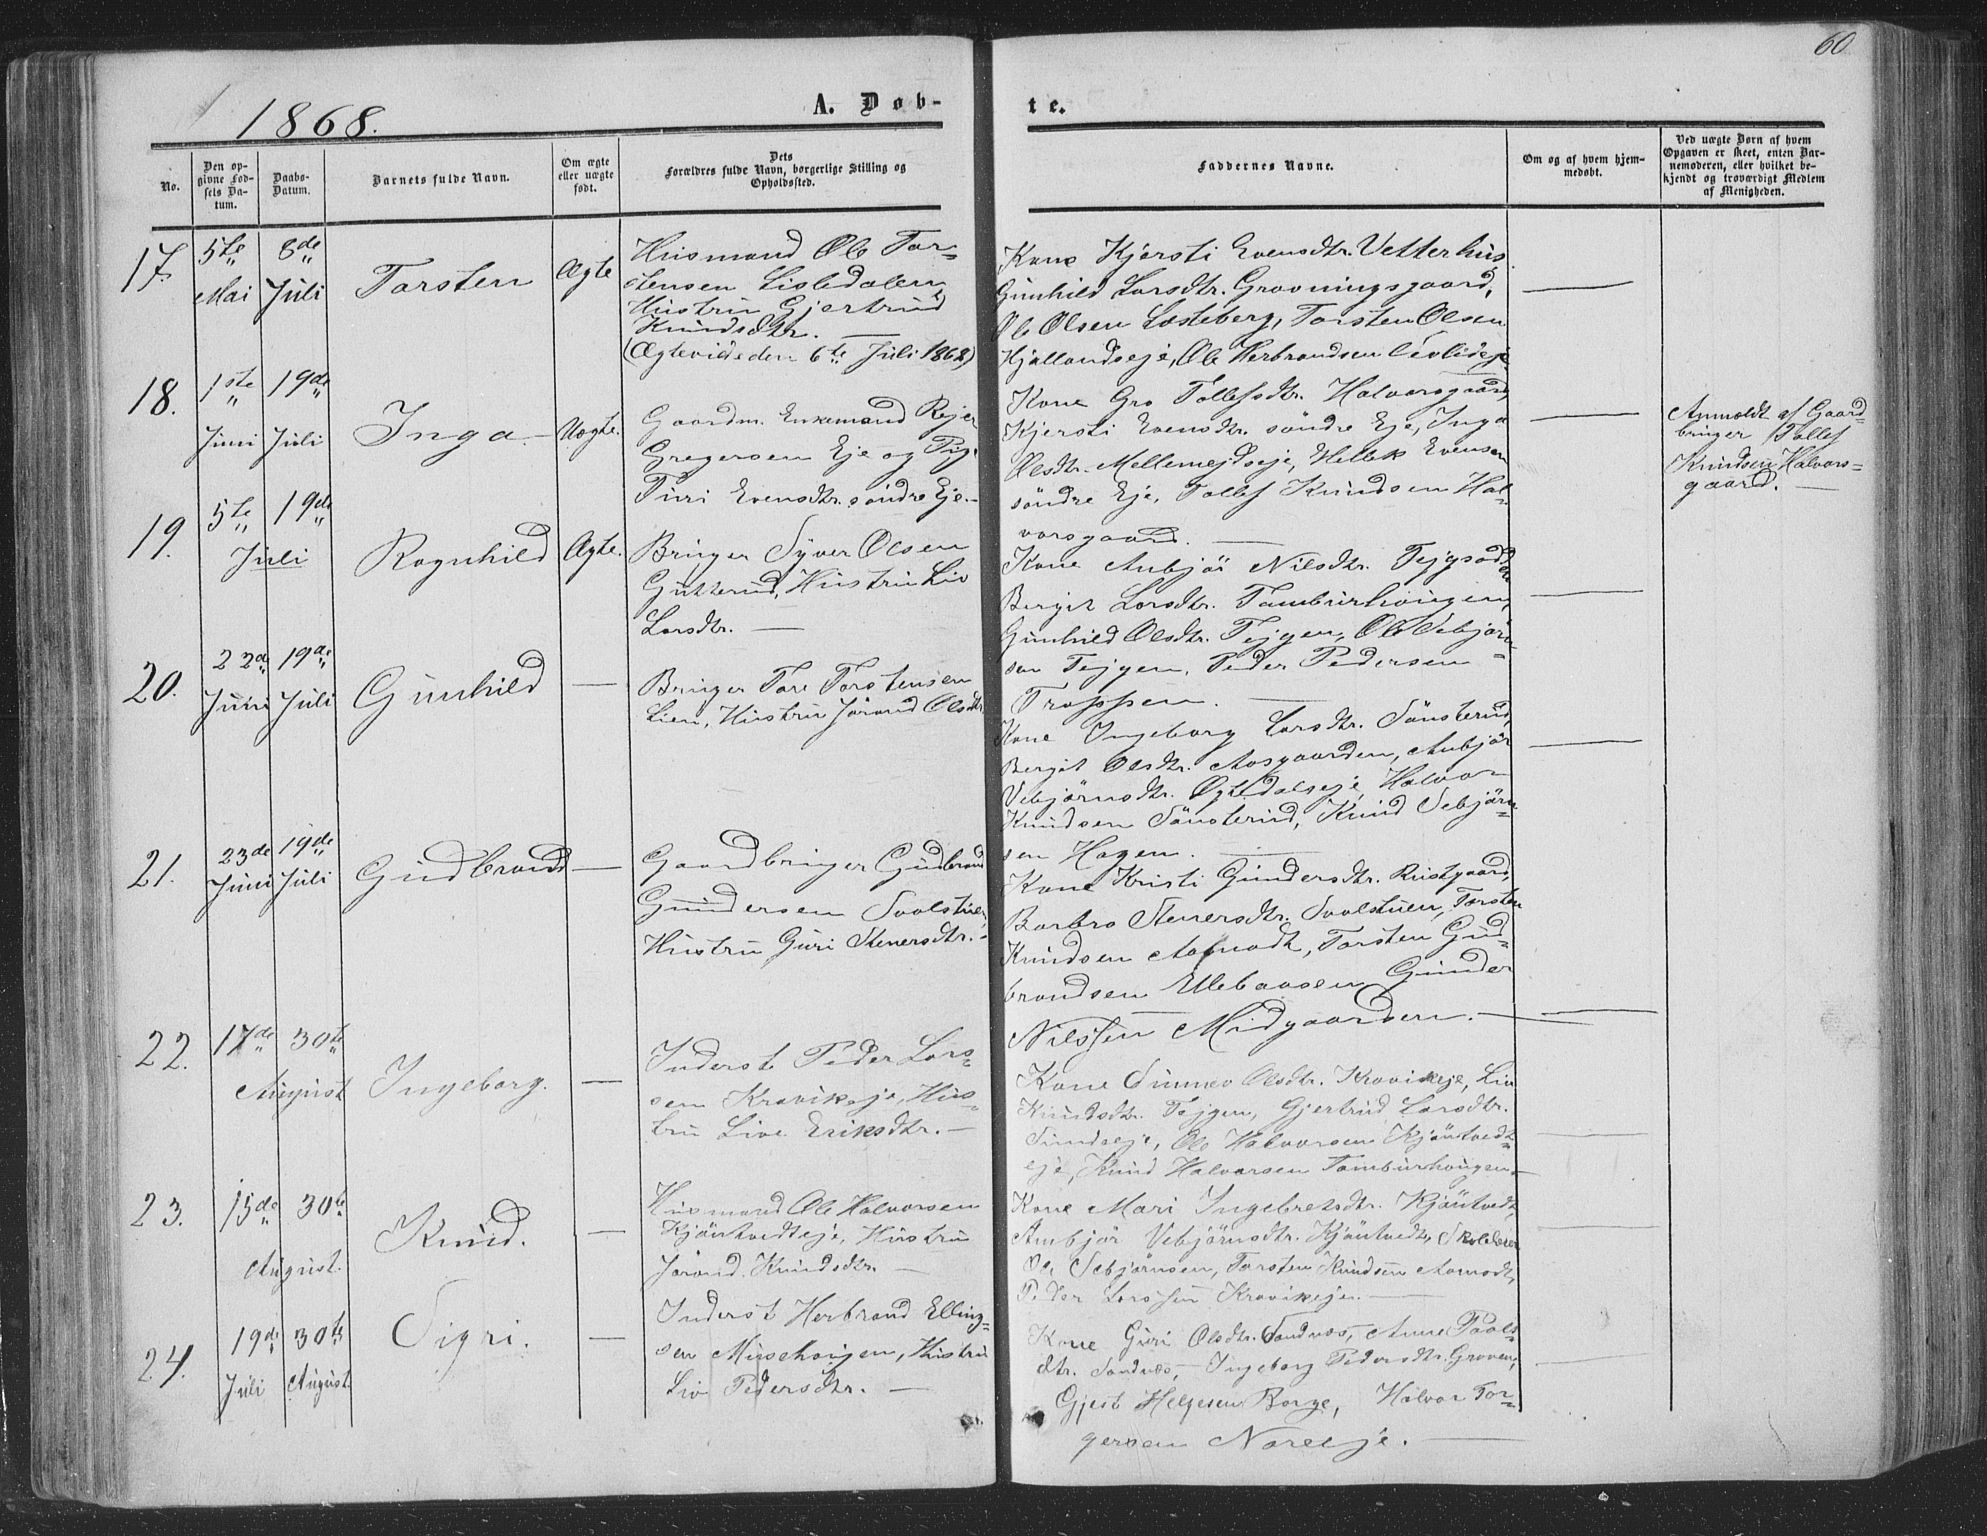 60
1868.
A. Døb-
te.
No.
Den op-
givne Fød-
sels Da-
tum.
Daabs-
Datum.
Barnets fulde Navn.
Om ægte
eller uægte
født.
Dets
Forældres fulde Navn, borgerlige Stilling og
Opholdssted.
Faddernes Navne.
Om og af hvem hjem-
medøbt.
Ved uægte Børn af hvem
Opgaven er skeet, enten Bar-
nemoderen, eller hvilket be-
kjendt og troværdigt Medlem
af Menigheden.
17.
5te
Mai
8de
Juli
Torsten
Ægte
Huusmand Ole Tor-
stensen Lisledalen,
Hustru Gjertrud
Knudsdtr. —
(Ægteviede den 6te Juli 1868)
Kone Kjersti Evensdtr. Vetterhus,
Gunhild Larsdtr. Grovningsgaard,
Ole Olsen Losteberg, Torsten Olsen
Hjallandseje, Ole Herbrandsen
18.
1ste
Juni
19de
Juli
Inga.
Uægte.
Gaardm. Enkemand Rejer
Gregersen Eje og Pig.
Turi Evensdtr. søndre Eje. —
Kone Gro Tollefsdtr. Halvorsgaard,
Kjersti Evensdtr. søndre Eje, Inga
Olsdtr. Mellemejdseje, Hellek Evensen
søndre Eje, Tollef Knudsen Hal-
vorsgaard. —
Anmeldt af Gaard
bruger Tollef
Knudsen Halvors-
gaard. —
19.
5te
19de
Juli
Ragnhild
Ægte.
Bruger Syver Olsen
Gutterud, Hustru Liv
Larsdtr. —
Kone Anbjør Nilsdtr.
Bergit Larsdtr. Tamburhougen,
Gunhild Olsdtr. Tejgen, Ole Sebjørn-
sen Tejgen, Peder Pedersen
Troppen. —
20.
22de
Juni
19de
Juli
Gunhild
—
Bruger Tore Torstensen
Lien, Hustru Jørand Olsdtr.
Kone Ingeborg Larsdtr. Sønsterud,
Bergit Olsdtr. Aasgaarden, Anbjør
Vebjørnsdtr. Halvor
Knudsen Sønsterud, Knud Sebjørn-
sen Hagen. —
21.
23de
Juni
19de
Juli
Gudbrand
—
Gaardbruger Gudbrand
Gundersen Svolstuen,
Hustru Guri Stenersdtr. —
Kone Kristi Gundersdtr. Rustgaard,
Barbro Stenersdtr. Svolstuen, Torsten
Knudsen Aamodt, Torsten Gud-
brandsen Ullebaasen, Gunder
Nilssen Midgaarden. —
22.
17de
30te
August
Ingeborg.
—
Inderst Peder Lars-
sen Kravikeje, Hus-
tru Live Eriksdtr. —
Kone Sunnev Olsdtr. Kravikeje, Liv
Knudsdtr. Tejgen, Gjertrud Larsdtr.
Sundseje, Ole Halvorsen Kjøntvedt-
eje, Knud Halvorsen Tamburhougen. —
23.
15de
30te
August.
Knud.
—
Husmand Ole Halvorsen
Kjøntvedteje, Hustru
Jørand Knudsdtr. —
Kone Mari Ingebretsdtr. Kjøntvedt,
Anbjør Vebjørnsdtr. Kjøntvedt,
Ole Sebjørnsen, Torsten Knudsen Aamodt,
Peder Larssen Kravikeje. —
24.
19de
Juli
30te
August.
Sigri.
—
Inderst Herbrand Elling-
sen Musehougen, Hustru
Liv Pedersdtr. —
Kone Guri Olsdtr. Sandnæs, Anne Paals-
dtr. Sandnæs, Ingeborg Pedersdtr. Groven,
Gjest Helgesen Borge, Halvor Tor-
gersen Noreeje. —